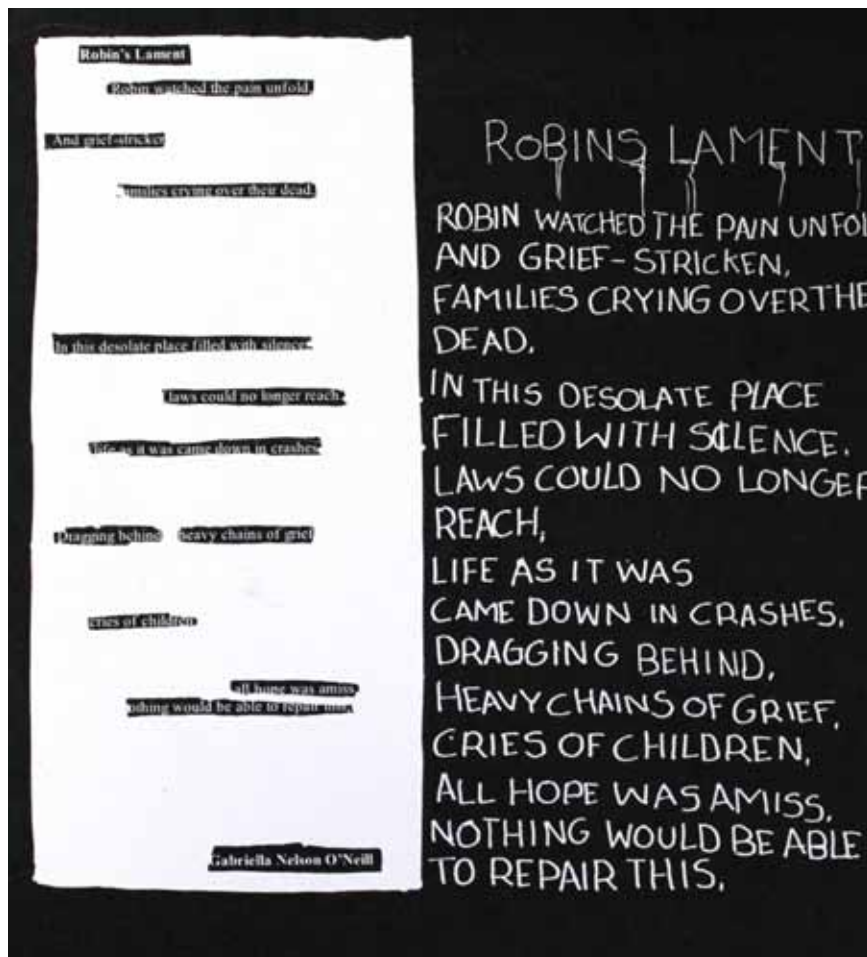 Robin's Lament
Robin watched the pain unfold,
And grief-stricken
Families crying over their dead.
In this desolate place filled with silence.
laws could no longer reach,
life as it was came down in crashes
Dragging behind heavy chains of grief
cries of children
all hope was amiss,
nothing would be able to repair this.
Gabriella Nelson O'Neill
ROBINS LAMENT
ROBIN WATCHED THE PAIN UNFOL
AND GRIEF-STRICKEN,
FAMILIES CRYING OVER THE
DEAD.
IN THIS DESOLATE PLACE
FILLED WITH SILENCE.
LAWS COULD NO LONGER
REACH,
LIFE AS IT WAS
CAME DOWN IN CRASHES,
DRAGGING BEHIND,
HEAVY CHAINS OF GRIEF,
CRIES OF CHILDREN,
ALL HOPE WAS AMISS,
NOTHING WOULD BE ABLE
TO REPAIR THIS.